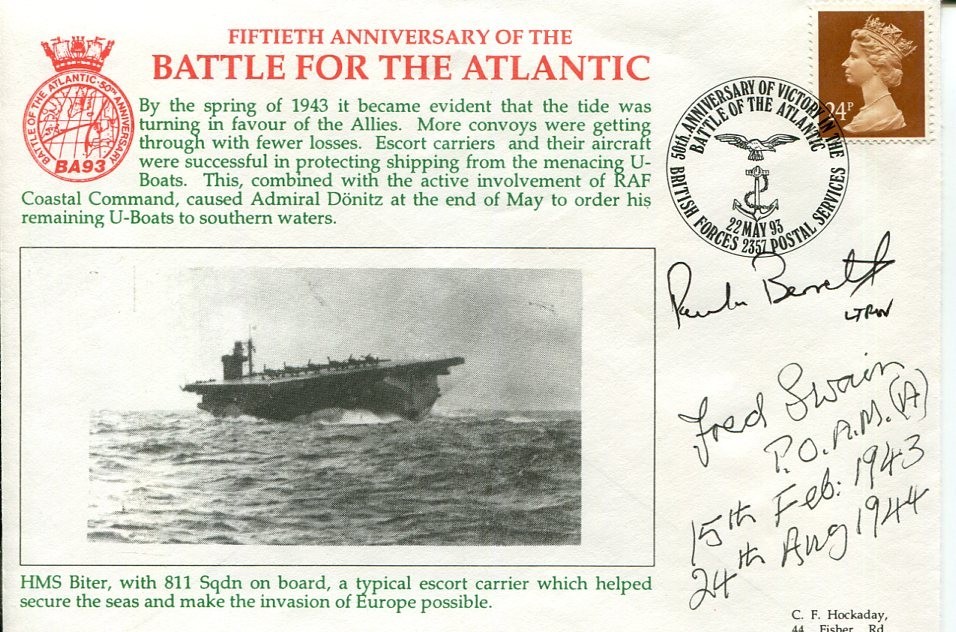 FIFTIETH ANNIVERSARY OF THE
BATTLE FOR THE ATLANTIC
BATTLE OF THE ATLANTIC·50th ANNIVERSARY
BA93
By the spring of 1943 it became evident that the tide was
turning in favour of the Allies. More convoys were getting
through with fewer losses. Escort carriers and their aircraft
were successful in protecting shipping from the menacing U-
Boats. This, combined with the active involvement of RAF
Coastal Command, caused Admiral Dönitz at the end of May to order his
remaining U-Boats to southern waters.
24P
50th ANNIVERSARY OF VICTORY IN THE
BATTLE OF THE ATLANTIC
22 MAY 93
BRITISH FORCES 2357 POSTAL SERVICES
LT RN
Fred Swain
P.O.A.M.(A)
15th Feb: 1943
24th Aug 1944
HMS Biter, with 811 Sqdn on board, a typical escort carrier which helped
secure the seas and make the invasion of Europe possible.
C. F. Hockaday,
44 Fisher Rd